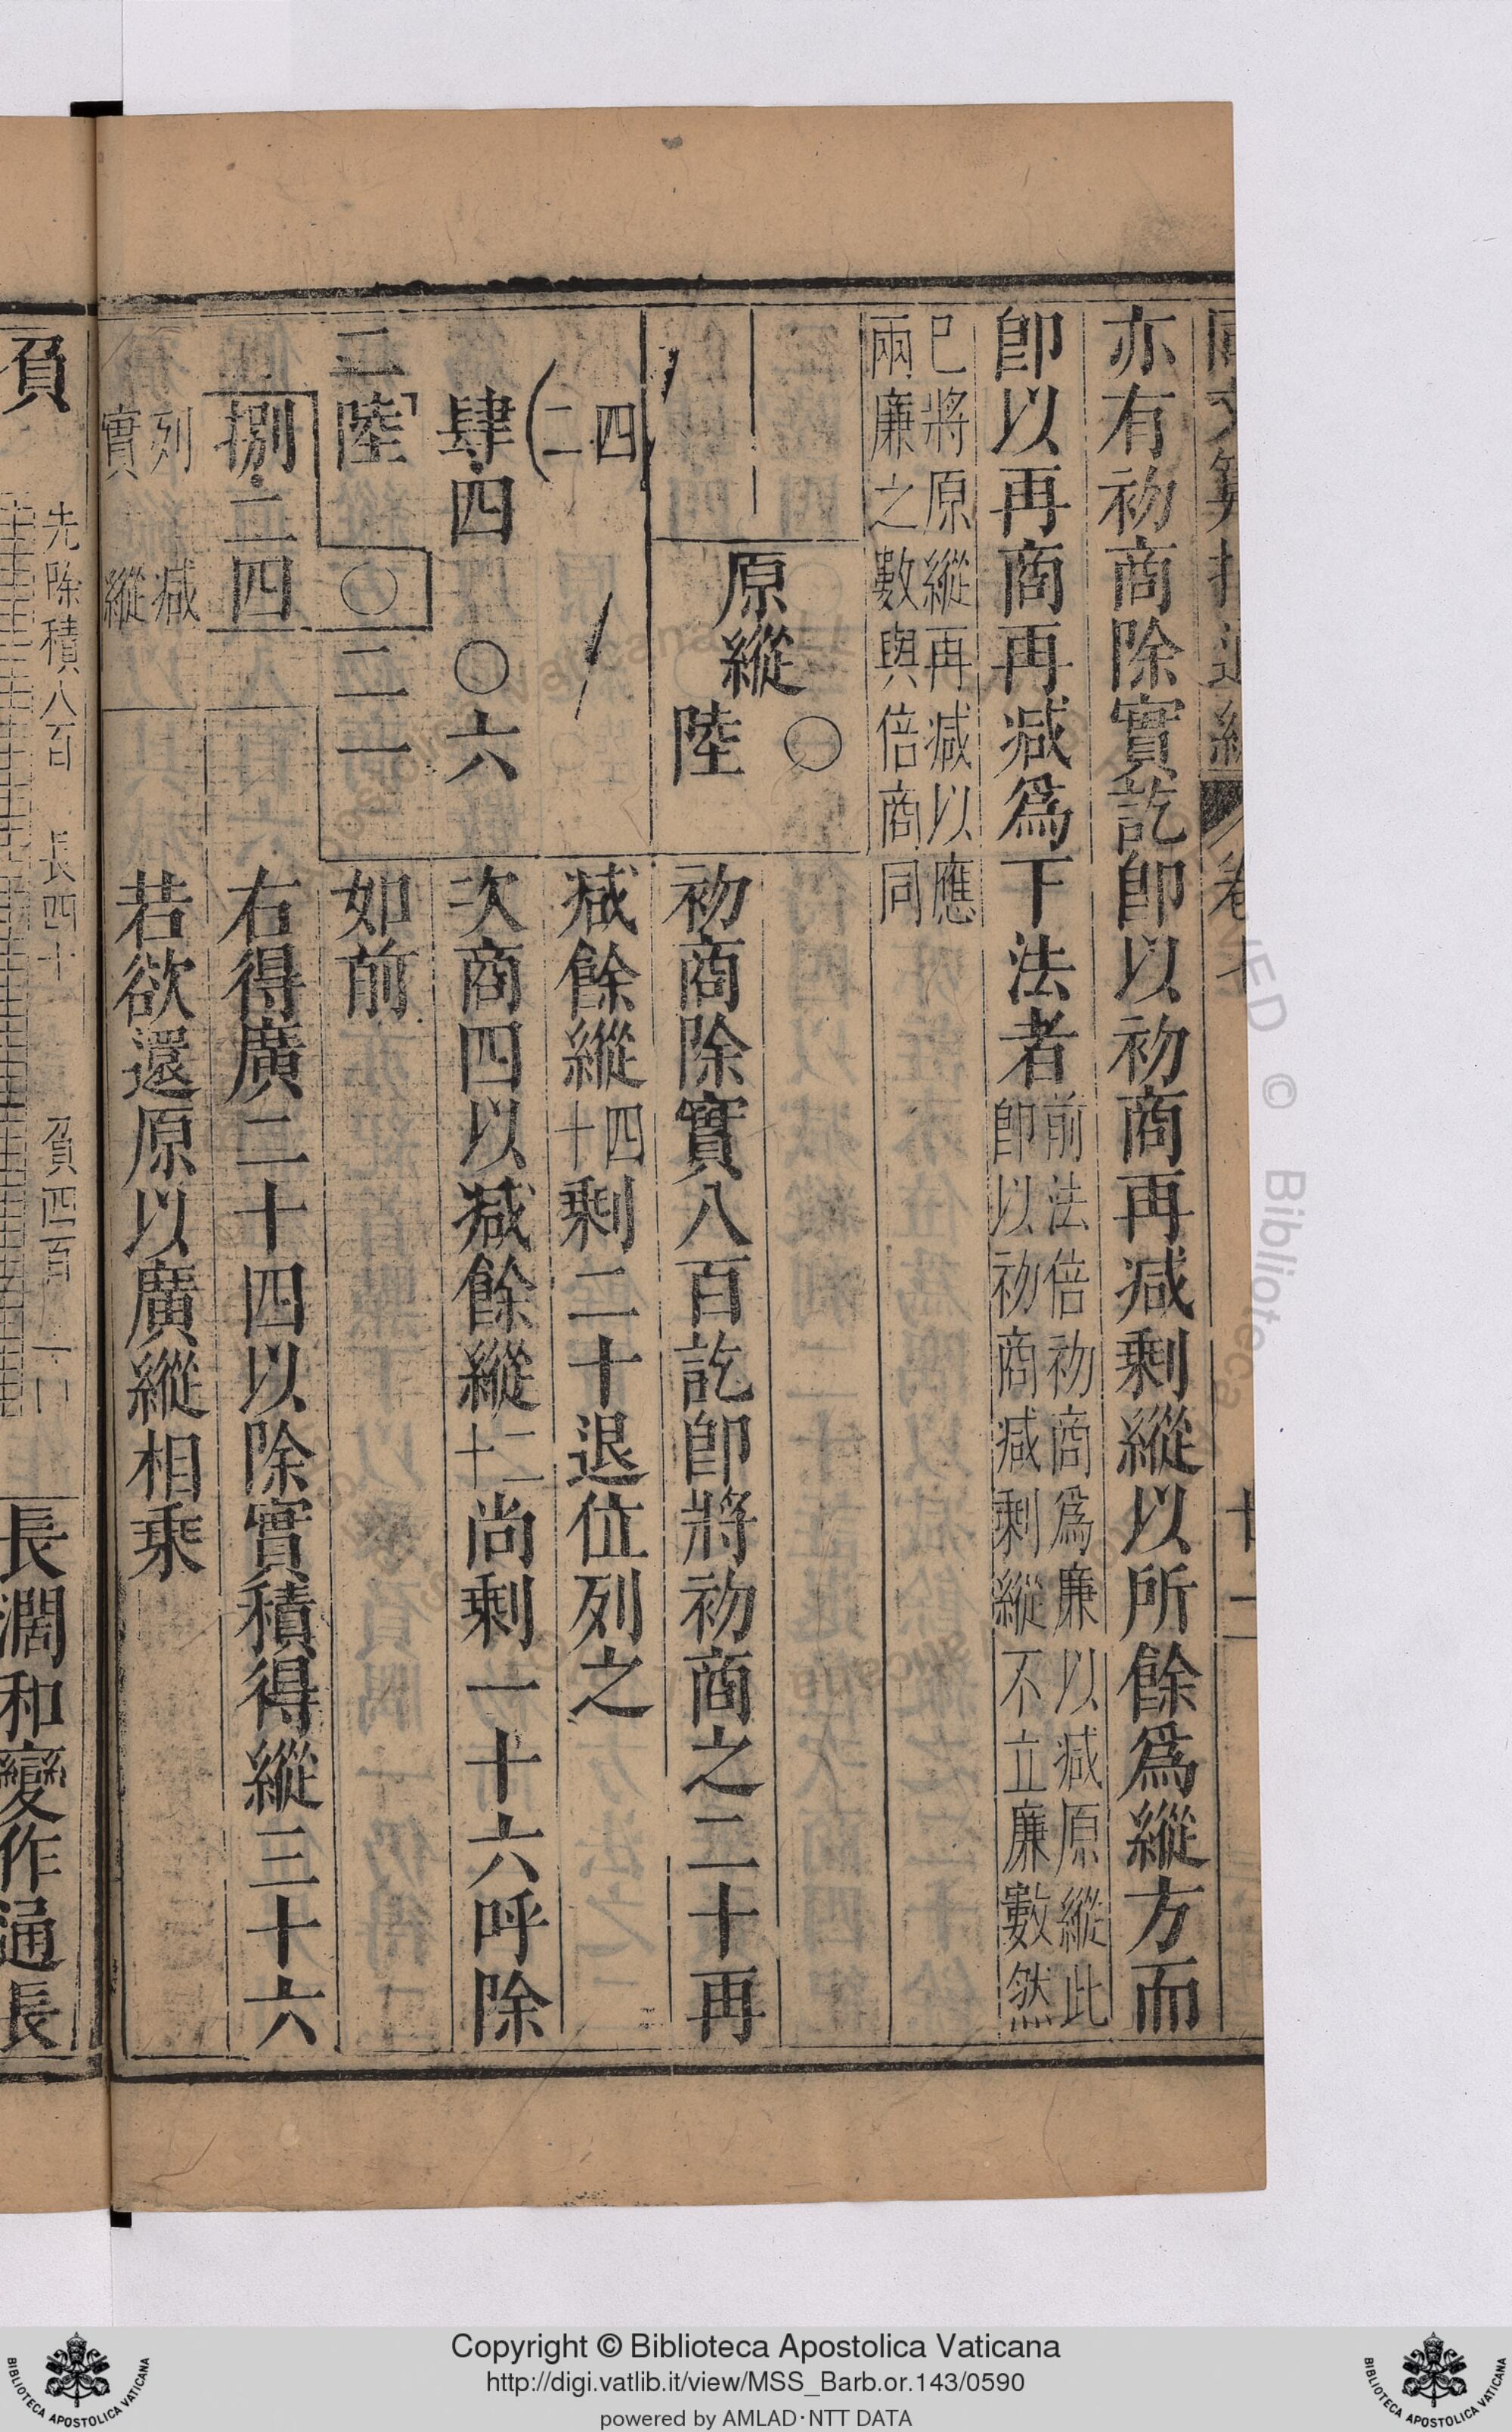 亦有初商除實訖卽以初商再減剩縱以所餘爲縱方而
卽以再商再減爲下法者
前法倍初商爲廉以減原縱此
卽以初商減剩縱不立廉數然
已將原縱再減以應
兩廉之數與倍商同
原縱
〇
陸
初商除實八百訖卽將初商之二十再
減餘縱四十剩二十退位列之
次商四以減餘縱二十尚剩一十六呼除
如前
右得廣二十四以除實積得縱三十六
若欲還原以廣縱相乘
四
二
肆四
〇六
二陸
〇
二一
捌二四
列實
減縱
負
先除積八百
長四十
負四百
長濶和變作通長
Copyright © Biblioteca Apostolica Vaticana
http://digi.vatlib.it/view/MSS_Barb.or.143/0590
powered by AMLAD·NTT DATA
BIBLIOTECA APOSTOLICA VATICANA
BIBLIOTECA APOSTOLICA VATICANA